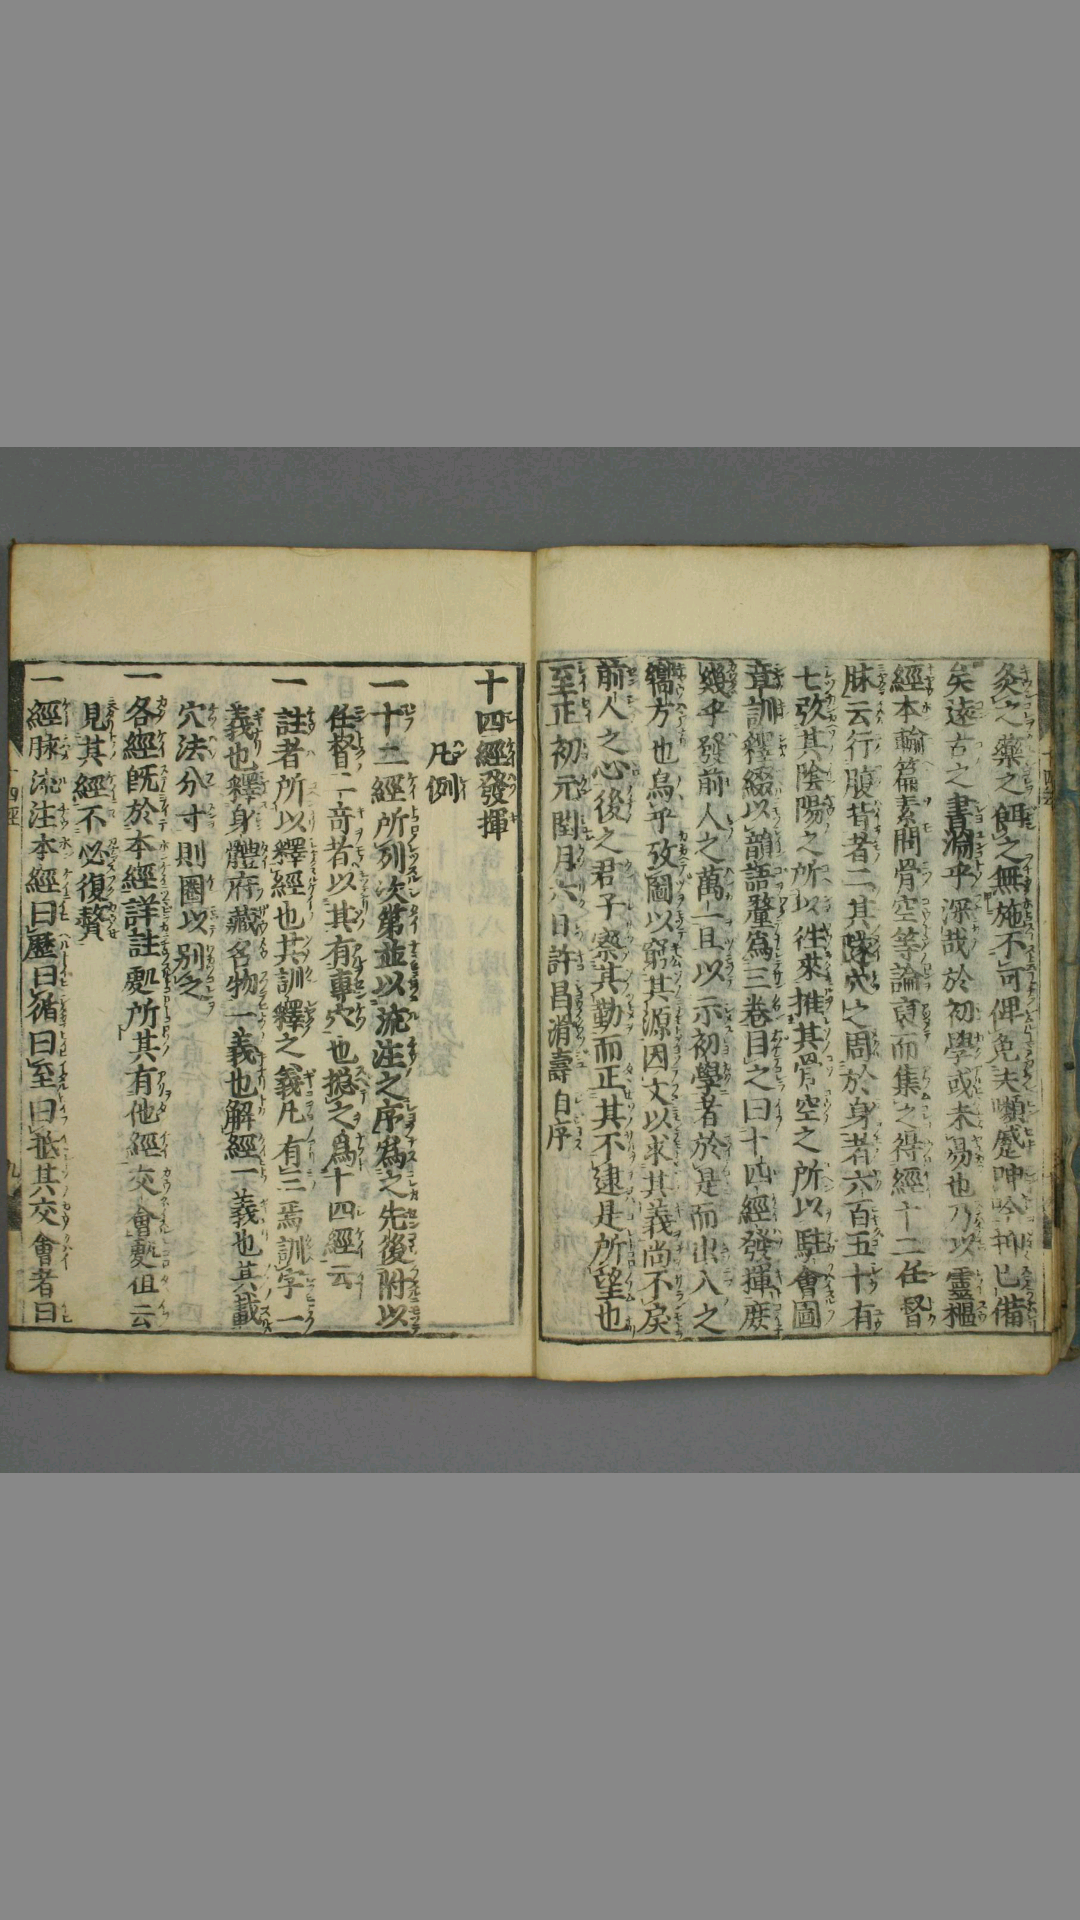 灸之藥之餌之無施不可俾免夫嚬蹙呻吟抑已備
矣遠古之書淵乎深哉於初學或未易也乃以靈樞
經本輸篇素問骨空等論裒而集之得經十二任督
脉云行腹背者二其隧穴之周於身者六百五十有
七攷其陰陽之所以徃來推其骨空之所以駐會圖
章訓釋綴以韻語釐爲三卷目之曰十四經發揮庶
幾乎發前人之萬一且以示初學者於是而出入之
嚮方也烏乎攷圖以窮其源因文以求其義尚不戾
前人之心後之君子察其勤而正其不逮是所望也
至正初元閏月六日許昌滑壽自序
十四經發揮
凡例
一十二經所列次第並以流注之序爲之先後附以
任督二奇者以其有專穴也揔之爲十四經云
一註者所以釋經也其訓釋之義凡有三焉訓字一
義也釋身體府藏名物一義也解經一義也其載
穴法分寸則圈以别之
一各經既於本經詳註處所其有他經交會䖏但云
見其經不必復贅
一經脉流注本經曰歷曰循曰至曰抵其交會者曰
十四經
九